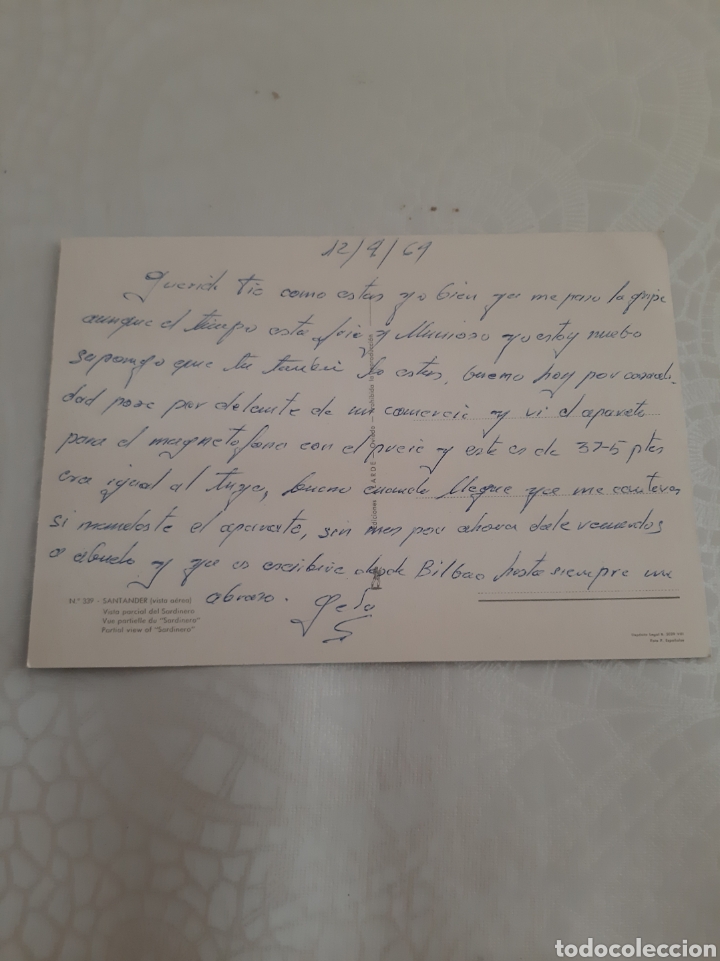 12/9/69
Querido Tio como estas yo bien ya me paso la gripe
aunque el tiempo esta frio y lluvioso yo estoy nuevo
supongo que tu tambien lo estas, bueno hoy por casuali
dad pase por delante de un comercio y vi el aparato
para el magnetofono con el precio y este es de 375 ptes
era igual al tuyo, bueno cuando llegue ya me conteras
si mandaste el aparato, sin mas por ahora dale recuerdos
a abuelo y ya os escribire desde Bilbao hasta siempre un
abrazo.
Ediciones ALARDE - Oviedo - Prohibida la reproducción
N.º 339 - SANTANDER (vista aérea)
Vista parcial del Sardinero
Vue partielle du "Sardinero"
Partial view of "Sardinero"
todocoleccion.net